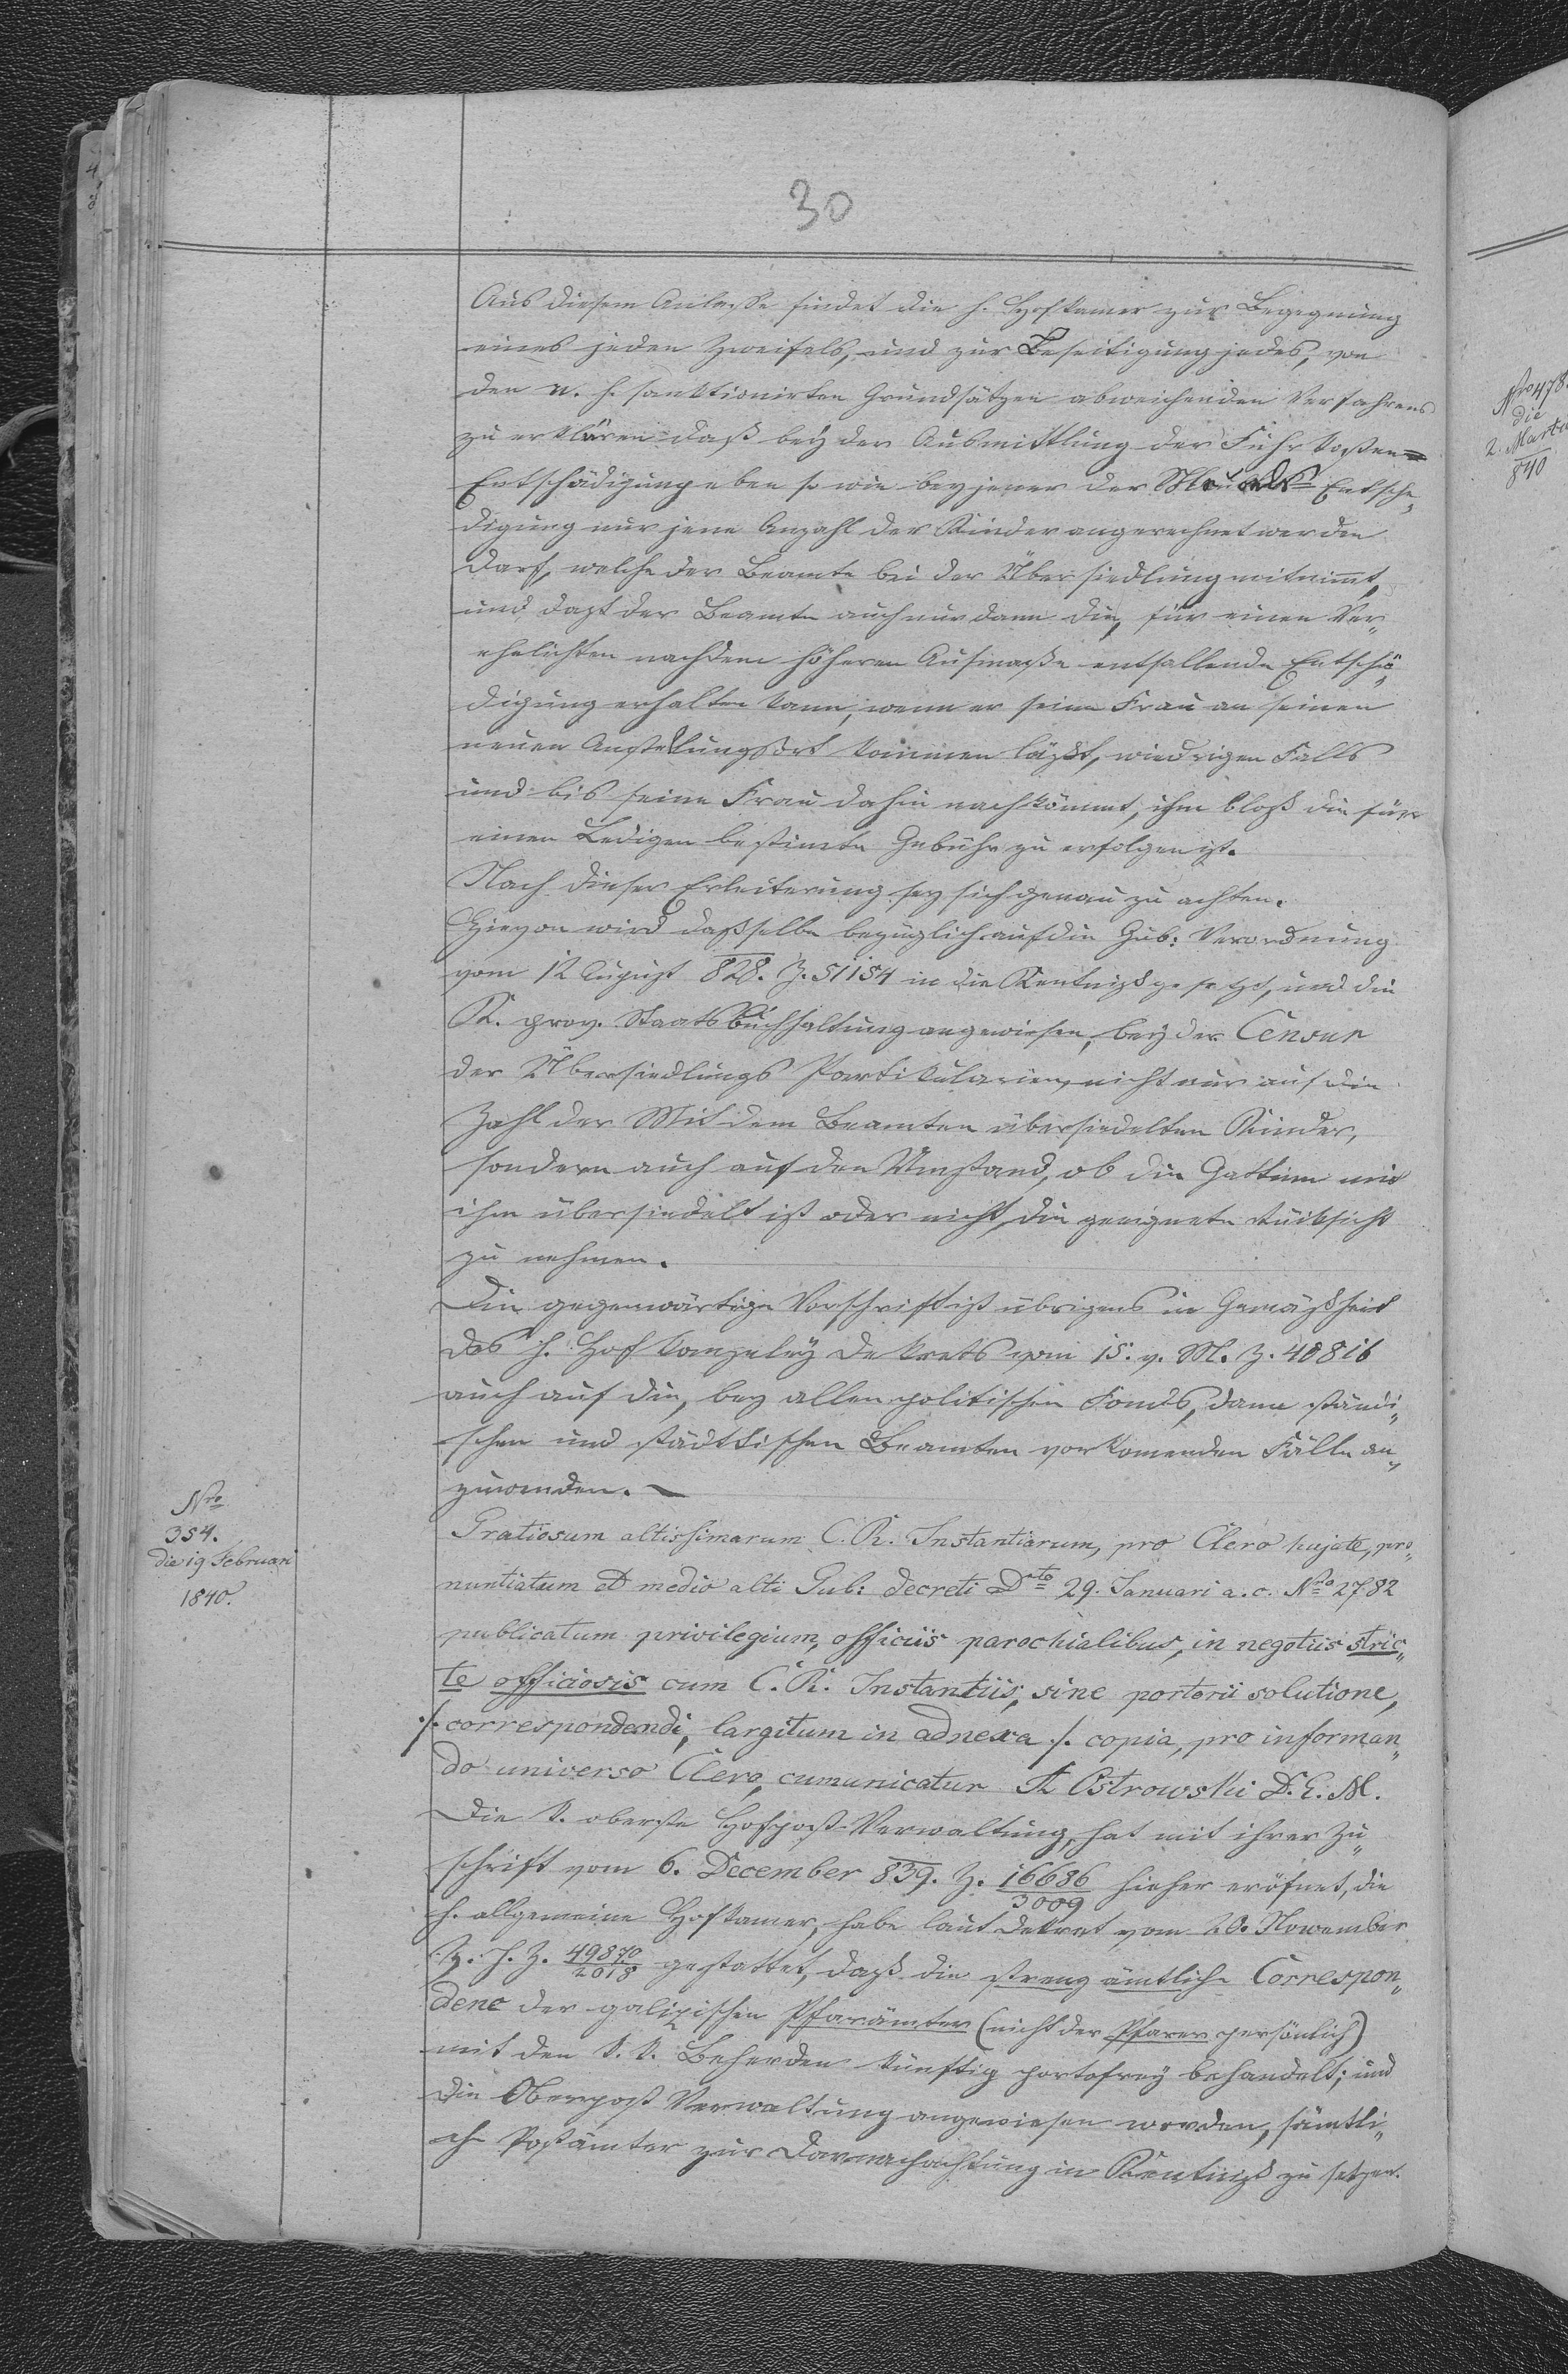 30
Aus diesem Anlasse findet die h. Hofkamer zur Begegnung
eines jeden Zweifels, und zur Beseitigung jedes, von
den a. h. sanktionirten Grundsätzen abweichenden Verfahrens
zu erklären daß bey der Ausmittlung der Fuhrkosten=
Entschädigung eben so wie bey jener der Entsche„
digung nur jene Anzahl der Kinder angerechnet werden
darf, welche der Beamte bei der Übersiedlung mitnimt,
und daßt der Beamte auch nur dann die, für einen Ver„
ehelichten nach dem höheren Ausmaße entfallende Entschä„
digung erhalten kann, wenn er seine Frau an seinen
neuen Anstellungsort kommen läßt, wiedrigen Falls
und bis seine Frau dahin nachkömmt, ihm bloß die für
einen Ledigen bestimte Gebühr zu erfolgen ist.
Nach dieser Erleiterung sey sich genau zu achten.
Hievon wird dasselbe bezüglich auf die Gub: Verordnung
vom 12 August 828. Z. 51154 in die Kentniß gesetzt, und die
K. prov. Staatsbuchhaltung angewiesen, bey der Censur
der Übersiedlungs Partikularien, nicht nur auf die
Zahl der Mit dem Beamten übersiedelten Kinder,
sondern auch auf den Umstand, ob die Gattinn mit
ihm übersiedelt ist oder nicht, die geeignete Rücksicht
zu nehmen.
Die gegenwärtige Vorschrift ist übrigens in Gemäßheit
des h. Hof Kanzeley Dekrets vom 15. v. M. Z. 40816
auch auf die, bey allen politischen Fonds, dann ständi„
schen und städtischen Beamten vorkomenden Fälle an„
zuwenden.
Nro
354.
die 19 Februari
1840.
Gratiosum altissimarum C. R. Instantiarum, pro Clero hujate, pro„
nuntiatum et medio alti Gub: decreti Dto 29. Januari a. c. Nro 2782
publicatum privilegium, officiis parochialibus, in negotiis stric„
te officiosis cum C. R. Instantiis, sine portorii solutione,
./. correspondendi, largitum in adnexa ./. copia, pro informan„
do universo Clero, cumunicatur Ostrowski D. E. M.
Die k. oberste Hofpost-Verwaltung, hat mit ihrer Zu„
schrift vom 6. December 839. Z. 16686/3009 hieher eröfnet, die
h. allgemeine Hofkamer, habe laut Dekret vom 20. November
Z. 49870/2018 gestattet, daß die streng ämtliche Correspon„
denc der galizischen Pfarämter (nicht der Pfarer persönlich)
mit den k. k. Beherden künftig portofrey behandelt; und
die Oberpost Verwaltung angewiesen werden, sämtli„
che Postämter zur Darnachachtung in Kentniß zu setzen.
Nro 478
die
2. Marti
840